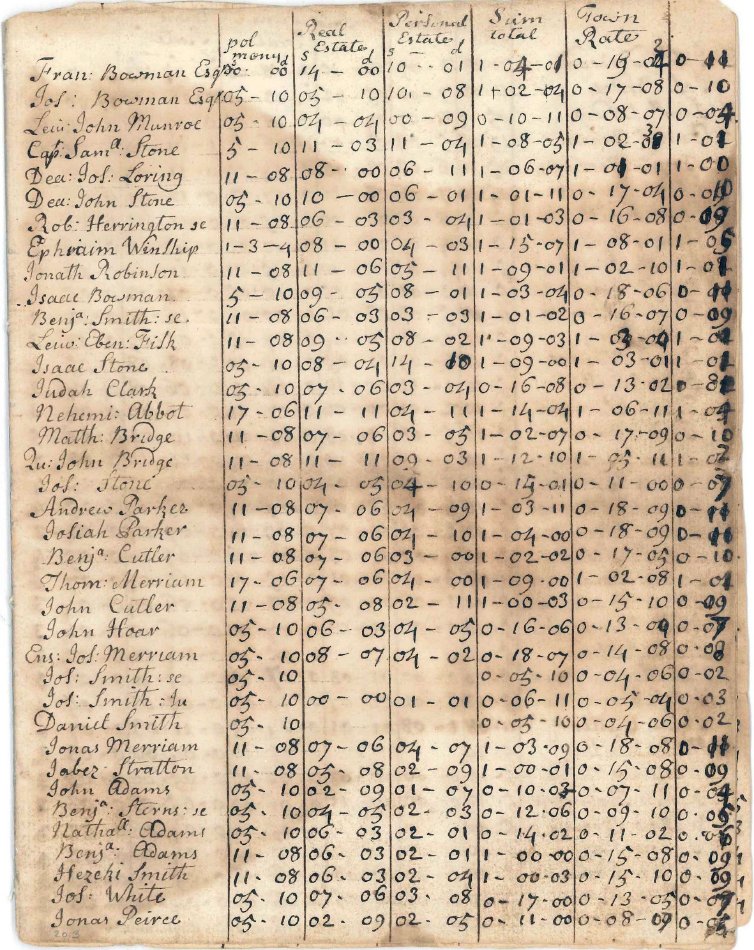 pol money d | Real Estate s d | Personal Estate s d | Sum total | Town Rate
Fran: Bowman Esqr 00: 00 14 - 00 10 - 01 1 - 04 - 01 0 - 19 - 0 - 11
Jos: Bowman Esqr 05 - 10 05 - 10 10 - 08 1 + 02 - 04 0 - 17 - 08 0 - 10
Leiu: John Munroe 05 - 10 04 - 04 00 - 09 0 - 10 - 11 0 - 08 - 07 0 - 04
Cap: Samª: Stone 5 - 10 11 - 03 11 - 04 1 - 08 - 05 1 - 02 - 1 - 01
Dea: Jos: Loring 11 - 08 08 - 00 06 - 11 1 - 06 - 07 1 - 01 - 01 1 - 00
Dea: John Stone 05 - 10 10 - 00 06 - 01 1 - 01 - 11 0 - 17 - 04 0 - 10
Rob: Herrington se 11 - 08 06 - 03 03 - 04 1 - 01 - 03 0 - 16 - 08 0 - 09
Ephraim Winship 1 - 3 - 4 08 - 00 04 - 03 1 - 15 - 07 1 - 08 - 01 1 - 05
Jonath Robinson 11 - 08 11 - 06 05 - 11 1 - 09 - 01 1 - 02 - 10 1 - 01
Isaac Bowman 5 - 10 09 - 05 08 - 01 1 - 03 - 04 0 - 18 - 06 0 - 11
Benjª: Smith: se 11 - 08 06 - 03 03 - 03 1 - 01 - 02 0 - 16 - 07 0 - 09
Leiu: Eben: Fisk 11 - 08 09 - 05 08 - 02 1 - 09 - 03 1 - 03 - 1 - 01
Isaac Stone 05 - 10 08 - 04 14 - 10 1 - 09 - 00 1 - 03 - 01 1 - 01
Judah Clark 05 - 10 07 - 06 03 - 04 0 - 16 - 08 0 - 13 - 02 0 - 8
Nehemi: Abbot 17 - 06 11 - 11 04 - 11 1 - 14 - 04 1 - 06 - 11 1 - 04
Matth: Bridge 11 - 08 07 - 06 03 - 05 1 - 02 - 07 0 - 17 - 09 0 - 10
Qu: John Bridge 11 - 08 11 - 11 09 - 03 1 - 12 - 10 1 - 05 - 11 1 - 2
Jos: Stone 05 - 10 04 - 05 04 - 10 0 - 15 - 01 0 - 11 - 00 0 - 7
Andrew Parker 11 - 08 07 - 06 04 - 09 1 - 03 - 11 0 - 18 - 09 0 - 11
Josiah Parker 11 - 08 07 - 06 04 - 10 1 - 04 - 00 0 - 18 - 09 0 - 11
Benjª: Cutler 11 - 08 07 - 06 03 - 00 1 - 02 - 02 0 - 17 - 05 0 - 10
Thom: Merriam 17 - 06 07 - 06 04 - 00 1 - 09 - 00 1 - 02 - 08 1 - 01
John Cutler 11 - 08 05 - 08 02 - 11 1 - 00 - 03 0 - 15 - 10 0 - 09
John Hoar 05 - 10 06 - 03 04 - 05 0 - 16 - 06 0 - 13 - 0 - 07
Ens: Jos: Merriam 05 - 10 08 - 07 04 - 02 0 - 18 - 07 0 - 14 - 08 0 - 8
Jos: Smith: se 05 - 10 0 - 05 - 10 0 - 04 - 06 0 - 02
Jos: Smith: Ju 05 - 10 00 - 00 01 - 01 0 - 06 - 11 0 - 05 - 04 0 - 03
Daniel Smith 05 - 10 0 - 05 - 10 0 - 04 - 06 0 - 02
Jonas Merriam 11 - 08 07 - 06 04 - 07 1 - 03 - 09 0 - 18 - 08 0 - 11
Jabez Stratton 11 - 08 05 - 08 02 - 09 1 - 00 - 01 0 - 15 - 08 0 - 09
John Adams 05 - 10 02 - 09 01 - 07 0 - 10 - 03 0 - 07 - 11 0 - 04
Benjª: Sterns: se 05 - 10 04 - 05 02 - 03 0 - 12 - 06 0 - 09 - 10 0 - 05
Nathall: Adams 05 - 10 06 - 03 02 - 01 0 - 14 - 02 0 - 11 - 02 0 - 6
Benjª: Adams 11 - 08 06 - 03 02 - 01 1 - 00 - 00 0 - 15 - 08 0 - 09
Hezeki Smith 11 - 08 06 - 03 02 - 04 1 - 00 - 03 0 - 15 - 10 0 - 09
Jos: White 05 - 10 07 - 06 03 - 08 0 - 17 - 00 0 - 13 - 05 0 - 7
Jonas Peirce 05 - 10 02 - 09 02 - 05 0 - 11 - 00 0 - 08 - 09 0 - 5
2013